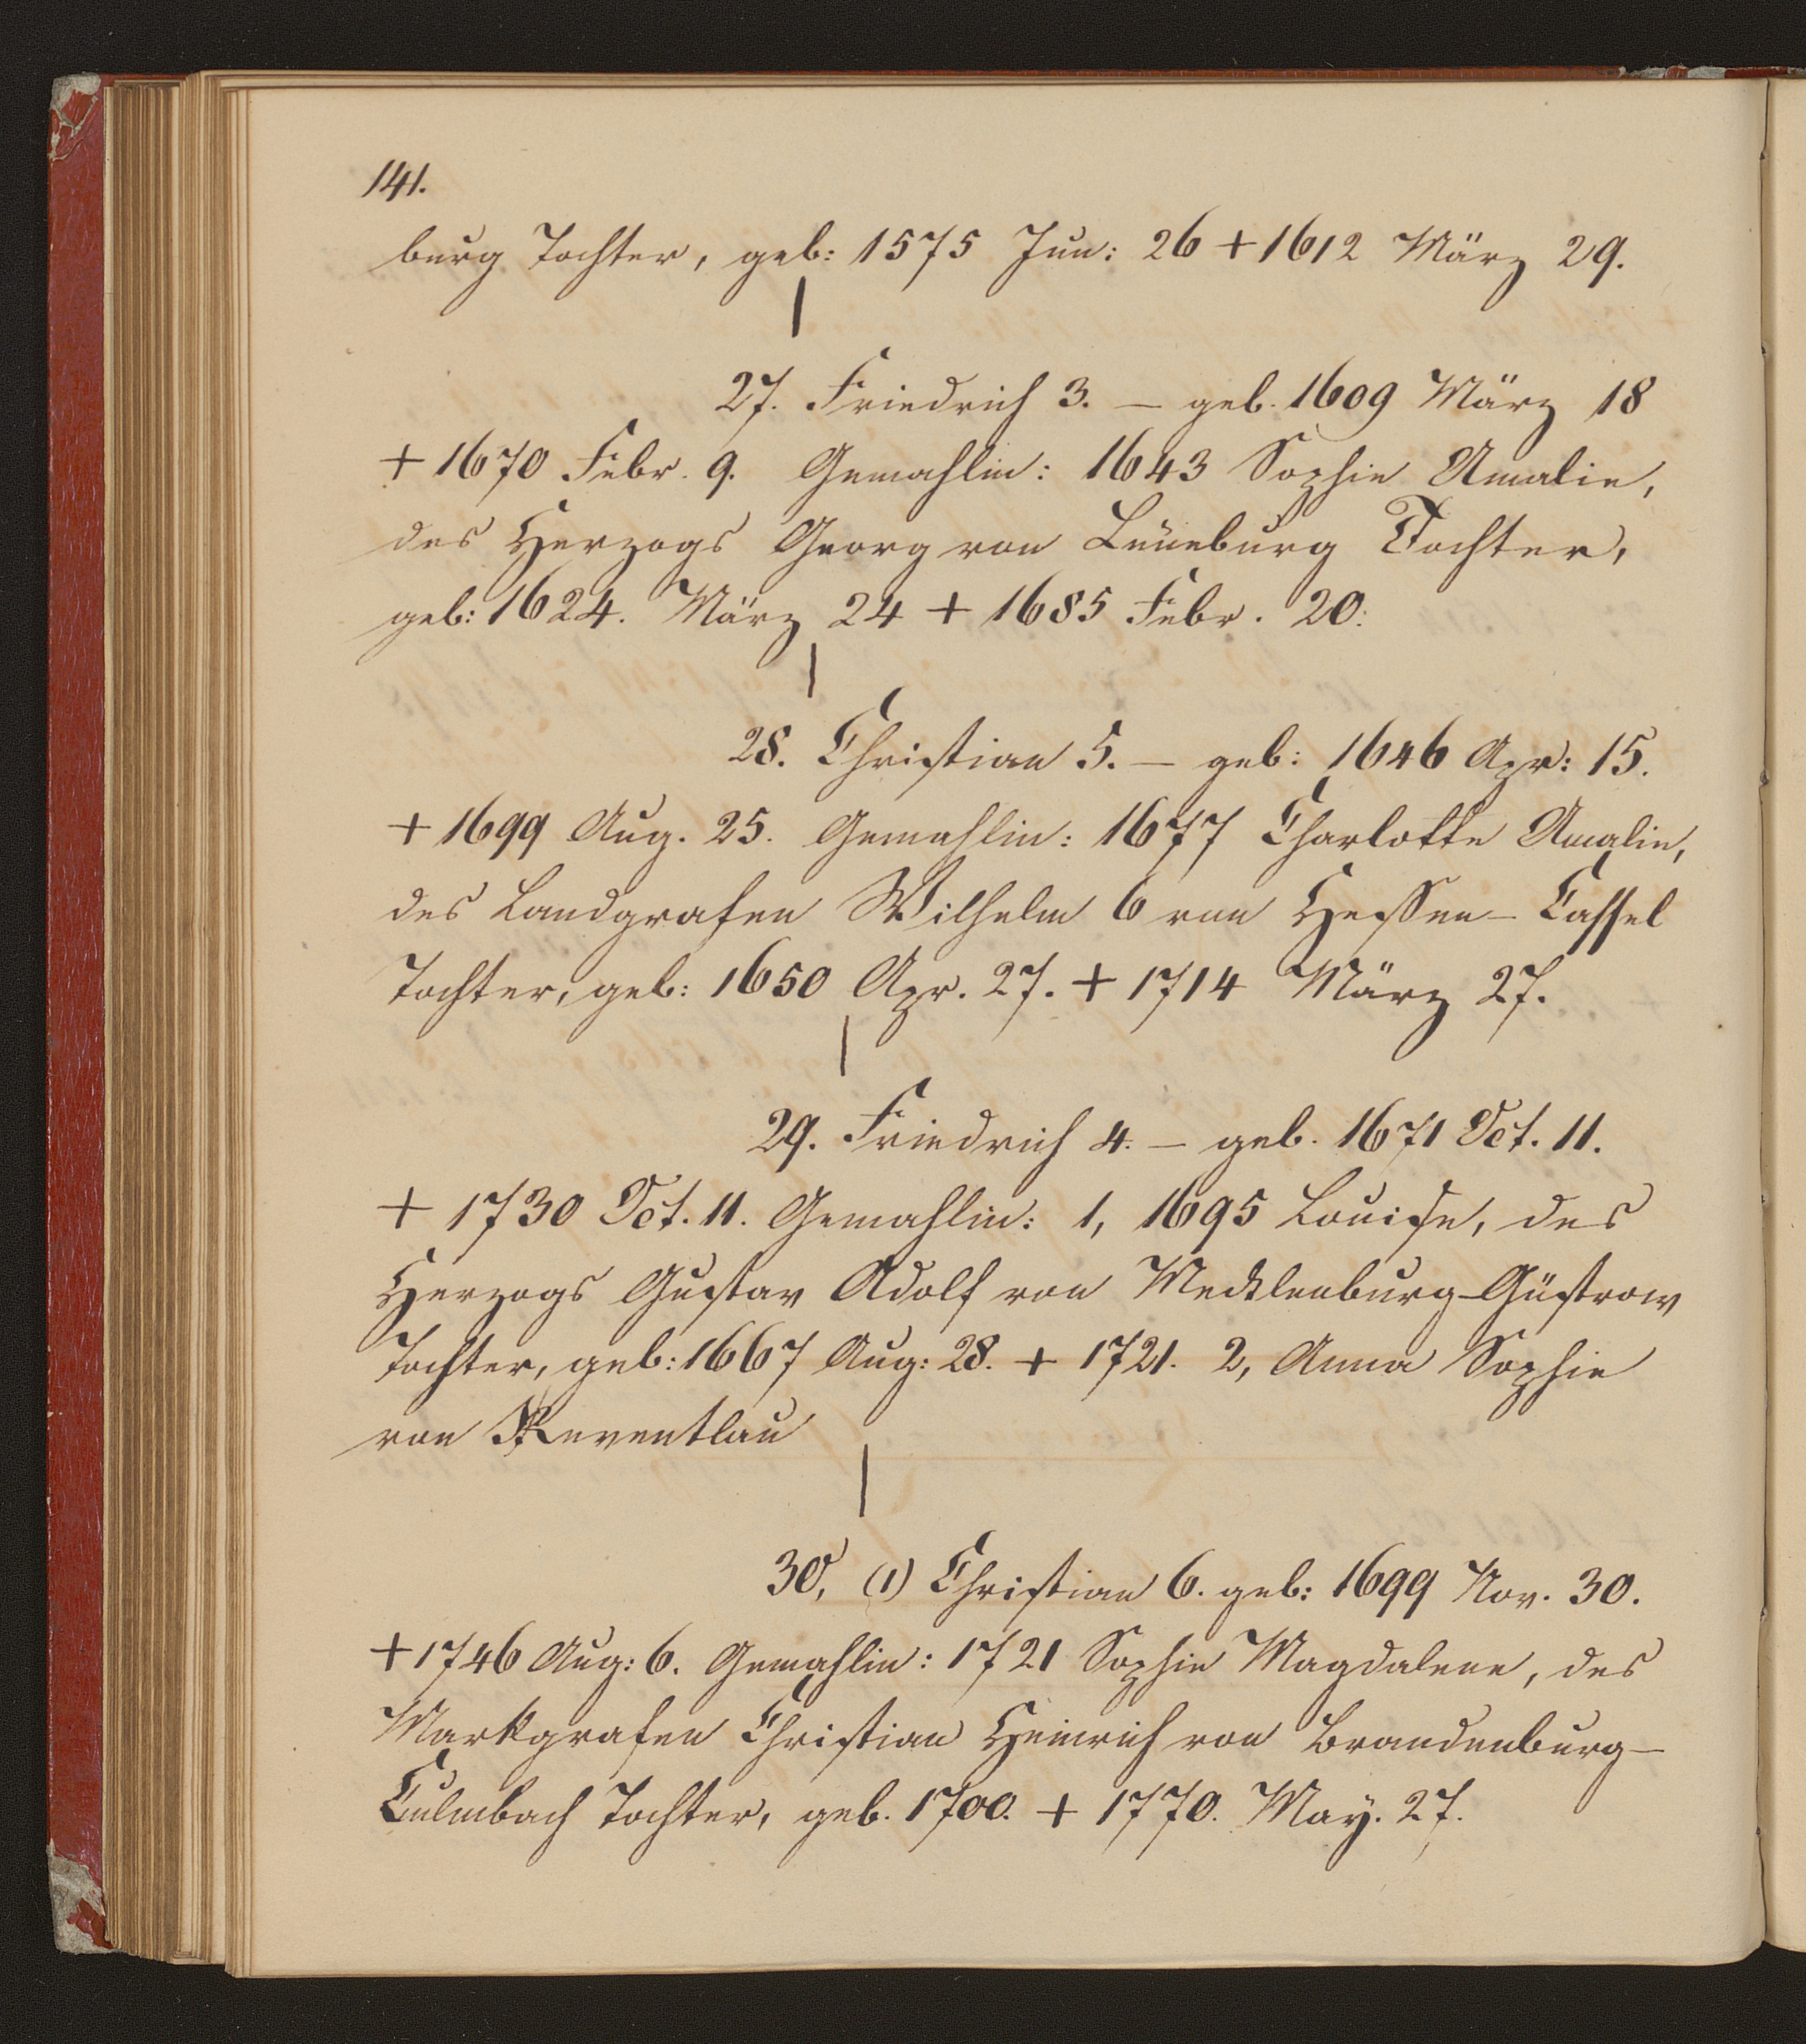 141.
burg Tochter, geb: 1575 Jun: 26 + 1612 März 29.
27. Friedrich 3. — geb. 1609 März 18
+ 1670 Febr. 9. Gemahlin: 1643 Sophie Amalie,
des Herzogs Georg von Lüneburg Tochter,
geb: 1624. März 24 + 1685 Febr. 20.
28. Christian 5. — geb: 1646 Apr: 15.
+ 1699 Aug. 25. Gemahlin: 1677 Charlotte Amalie,
des Landgrafen Wilhelm 6 von Hessen-Cassel
Tochter, geb: 1650 Apr. 27. + 1714 März 27.
29. Friedrich 4. — geb. 1671 Oct. 11.
+ 1730 Oct. 11. Gemahlin: 1, 1695 Louise, des
Herzogs Gustav Adolf von Mecklenburg-Güstrow
Tochter, geb: 1667 Aug: 28. + 1721. 2, Anna Sophie
von Reventlau
30, (1) Christian 6. geb: 1699 Nov. 30.
+ 1746 Aug: 6. Gemahlin: 1721 Sophie Magdalene, des
Markgrafen Christian Heinrich von Brandenburg-
Culmbach Tochter, geb. 1700. + 1770. May. 27.